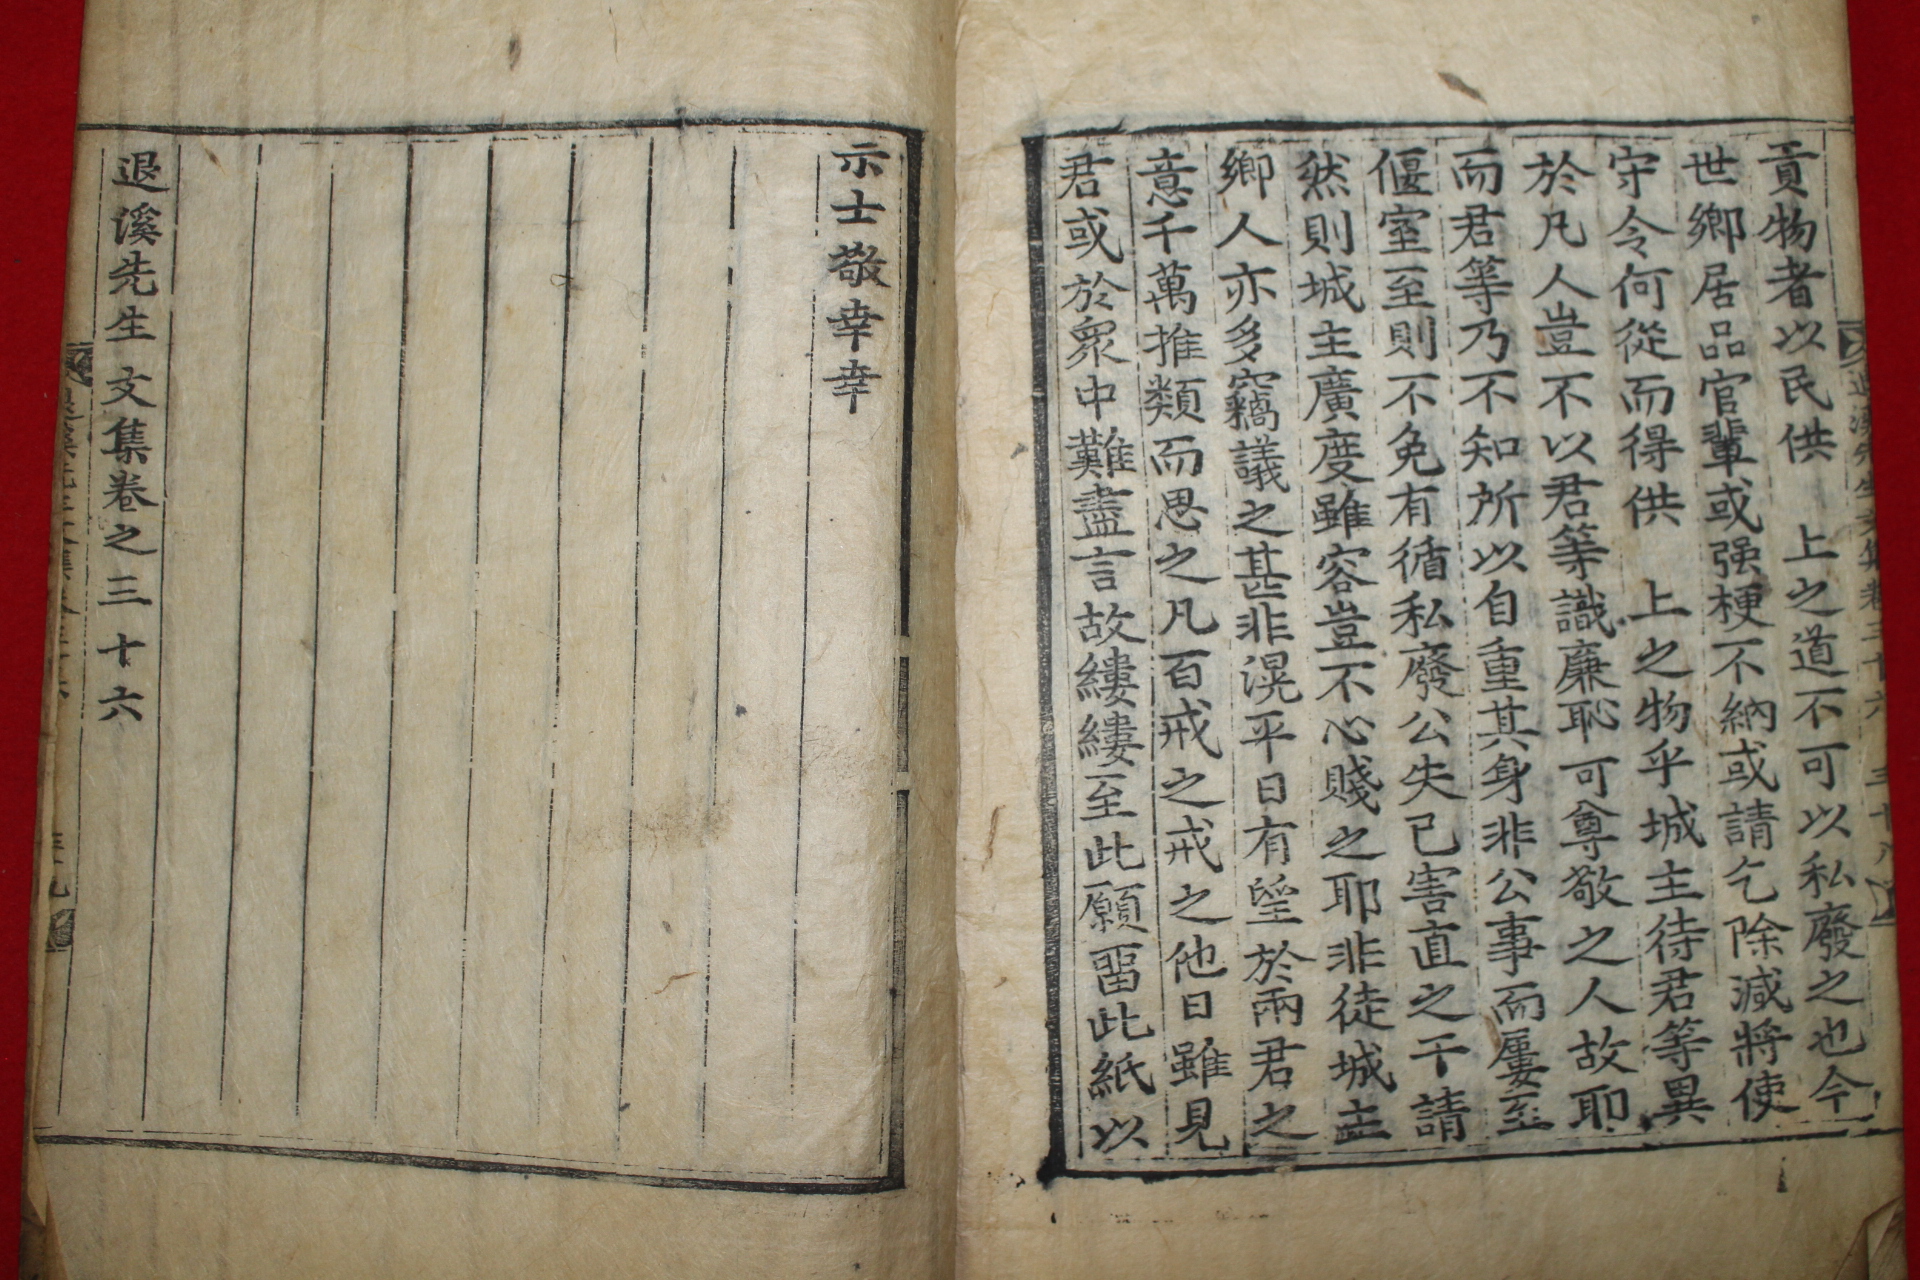 貢物者以民供　上之道不可以私廢之也今
世鄉居品官輩或强梗不納或請乞除減將使
守令何從而得供　上之物乎城主待君等異
於凡人豈不以君等識廉恥可尊敬之人故耶
而君等乃不知所以自重其身非公事而屢至
偃室至則不免有循私廢公失己害直之干請
然則城主廣度雖容豈不心賤之耶非徒城主
鄉人亦多竊議之甚非滉平日有望於兩君之
意千萬推類而思之凡百戒之戒之他日雖見
君或於衆中難盡言故縷縷至此願留此紙以
示士敬幸幸
退溪先生文集卷之三十六